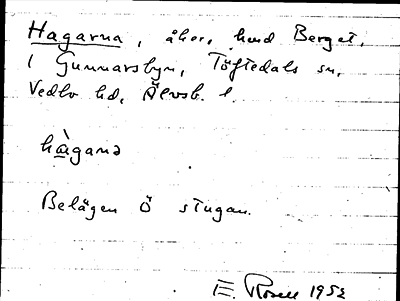 Hagarna, åker, hmd Berget,
i Gunnarsbyn, Töftedals sn,
Vedbo hd, Älvsb. l.
hàgana
Belägen Ö stugan.
E. Rosell 1952